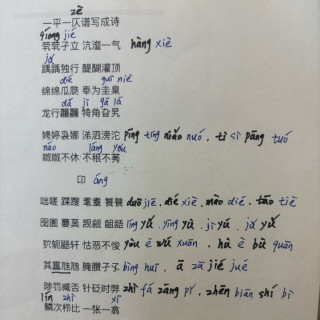 zè
一平一仄谱写成诗
qióng jié
茕茕孑立 沆瀣一气 hàng xiè
jǔ
踽踽独行 醍醐灌顶
dié guī niè
绵绵瓜瓞 奉为圭臬
dá jī gā lá
龙行龘龘 犄角旮旯
娉婷袅娜 涕泗滂沱 pīng tíng niǎo nuó, tì sì pāng tuó
náo láng yǒu
呶呶不休 不稂不莠
卬 áng
咄嗟 蹀躞 耄耋 饕餮 duō jiē, dié xiè, mào dié, tāo tiè
囹圄 蘡薁 觊觎 龃龉 líng yǔ, yīng yù, jì yú, jǔ yǔ
狖轭鼯轩 怙恶不悛 yòu è wú xuān, hù è bù quān
其靁虺虺 腌臢孑孓 huī, ā zā jié jué
陟罚臧否 针砭时弊 zhì fá zāng pǐ, zhēn biān shí bì
lín zhì xī
鳞次栉比 一张一翕